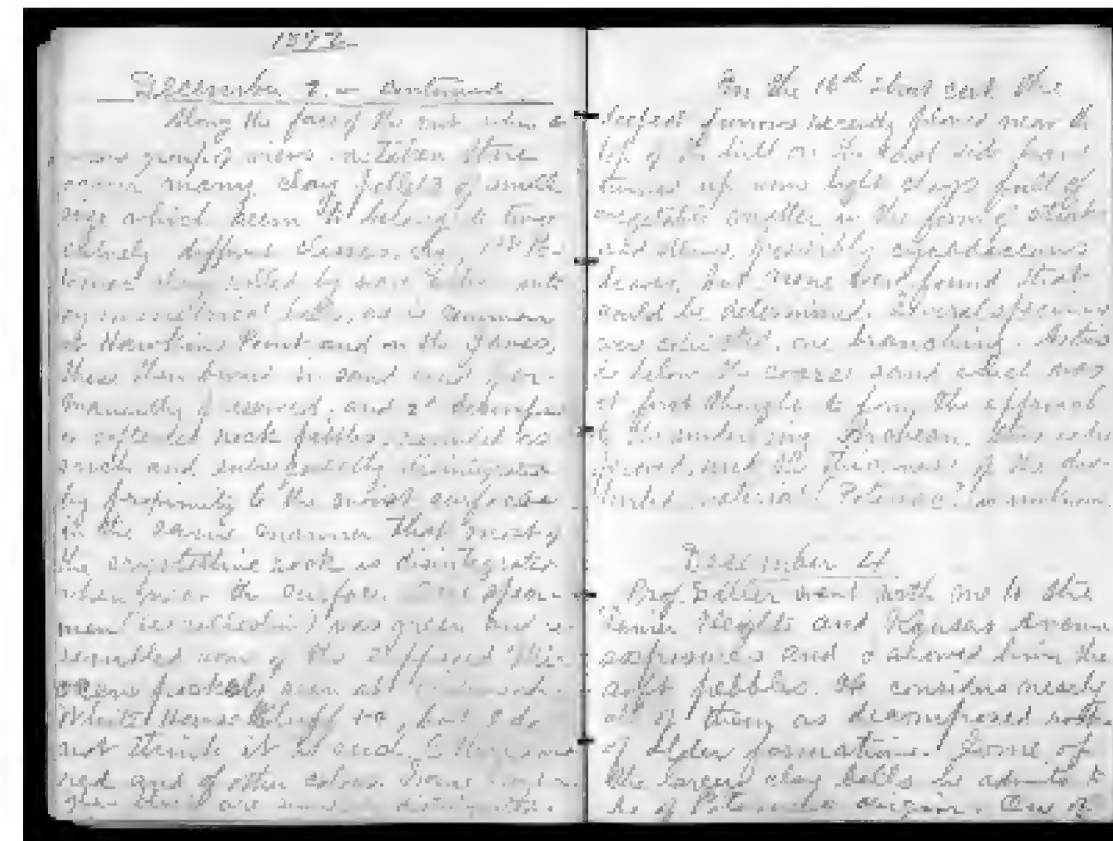 1892
December 2. continued
Along the face of the cut where a
group of views was taken there
occur many clay pellets of small
size which seem to belong to two
entirely different classes, viz, 1st Po-
tomac clay rolled by wave action into
symmetrical balls, as is common
at Hawkins Point and on the James,
these then bound in sand and per-
manently preserved, and 2d decomposed
or softened rock pebbles, rounded as
such and subsequently disintegrated
by proximity to the moist surfaces
in the same manner that most of
the crystalline rock is disintegrated
when near the surface. One speci-
men (see collection) was green and re-
sembled some of the supposed
pockets seen at
White House Bluff &c, but I do
not think it is such.
red and of other colors. Some
are
On the 16th street cut the
deepest furrows recently plowed near the
top of the hill on the east side have
turned up some light clays full of
vegetable matter in the form of sticks
and stems, possibly cycadaceous
leaves, but none were found that
could be determined. Several specimens
were collected, one branching. As this
is below the coarse sand which was
at first thought to form the approach
to the underlying Archean, this
proved, and the thickness of the
material (Potomac?) is
December 4
Prof. went with me to the
Lanier Heights and Kansas Avenue
exposures and I showed him the
soft pebbles. He considers nearly
all of them as decomposed rocks
of older formations. Some of
the larger clay balls he admits to
be of Potomac origin. One of